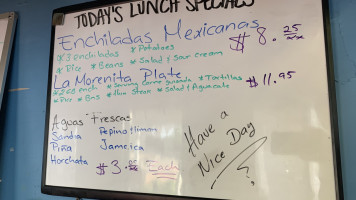 TODAY'S LUNCH SPECIALS
Enchiladas Mexicanas
* 3 enchiladas * Potatoes $8.25
* Rice * Beans * Salad & Sour cream
La Morenita Plate
* Tortillas $11.95
* Thin Steak * Salad & Aguacate
Aguas Frescas
Sandia Pepino/limon
Piña Jamaica
Horchata $3. Each
Have a
Nice Day